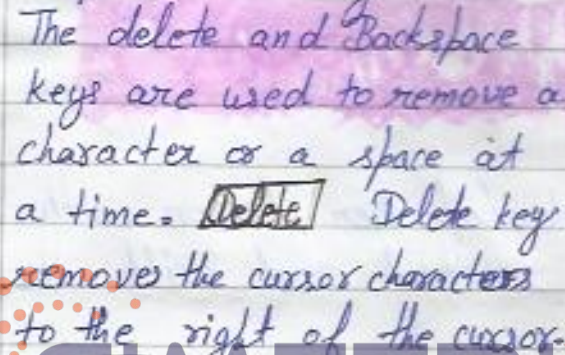 The delete and Backspace
keys are used to remove a
character or a space at
a time. Delete Delete key
removes the cursor characters
to the right of the cursor.